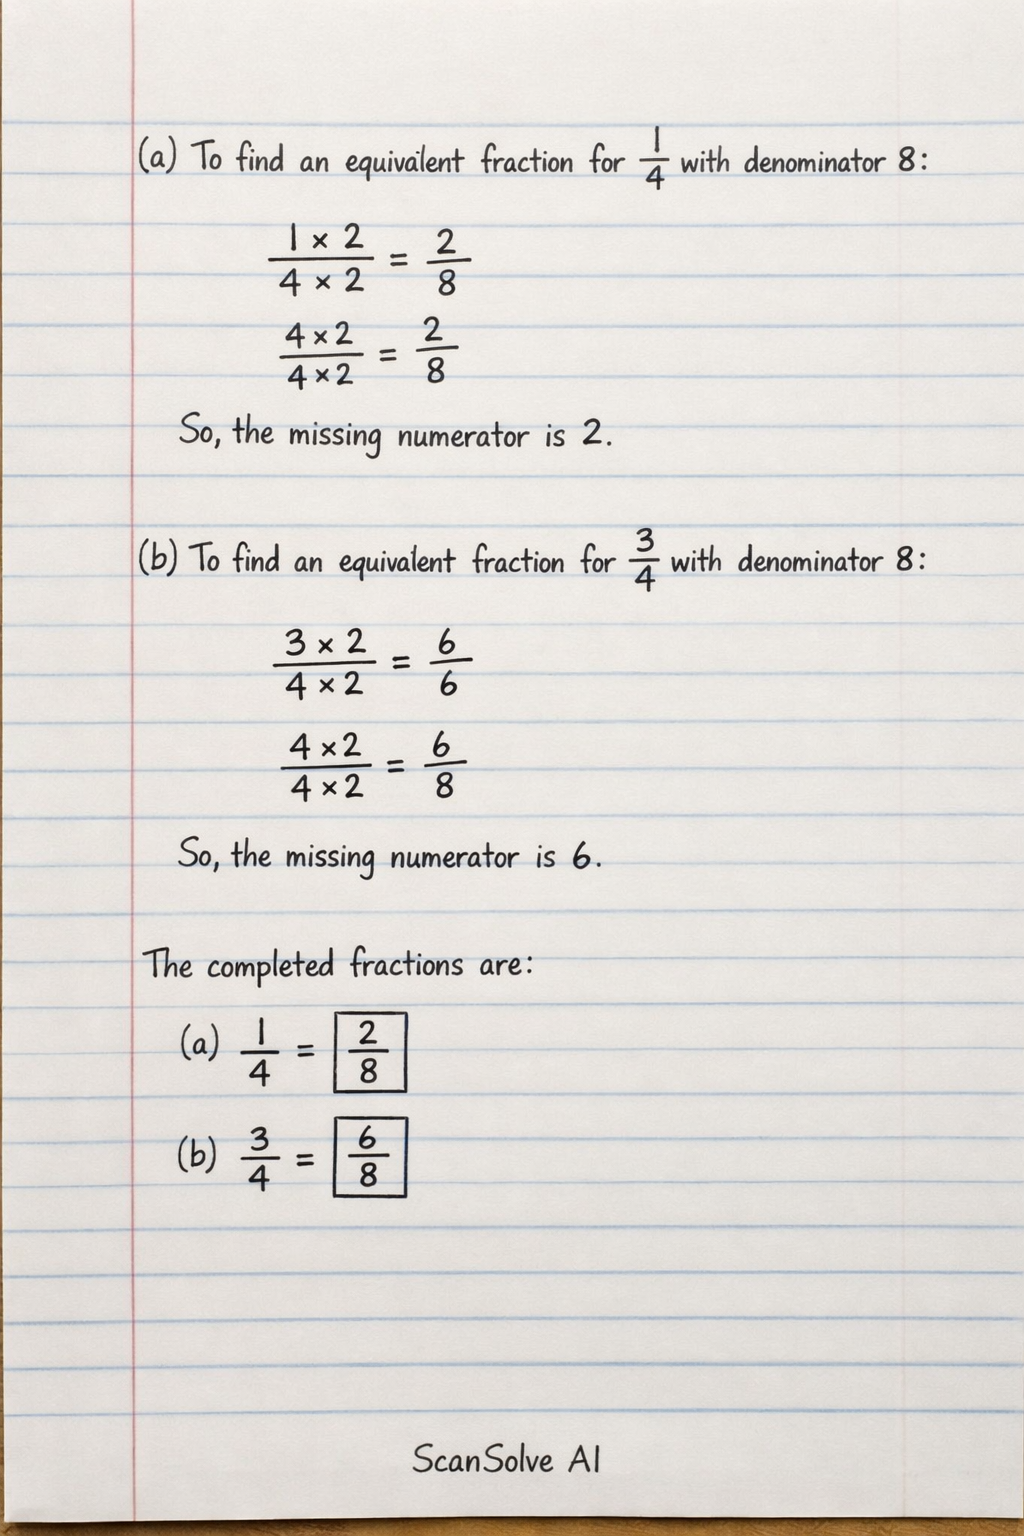 (a) To find an equivalent fraction for 1/4 with denominator 8:
1 × 2 / 4 × 2 = 2/8
4 × 2 / 4 × 2 = 2/8
So, the missing numerator is 2.
(b) To find an equivalent fraction for 3/4 with denominator 8:
3 × 2 / 4 × 2 = 6/6
4 × 2 / 4 × 2 = 6/8
So, the missing numerator is 6.
The completed fractions are:
(a) 1/4 = 2/8
(b) 3/4 = 6/8
ScanSolve AI